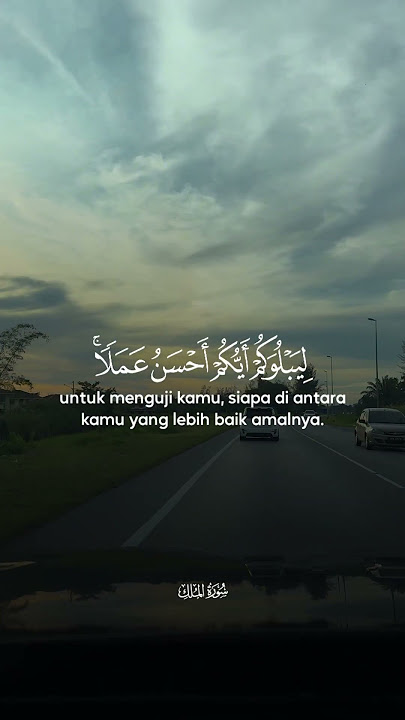 لِيَبْلُوَكُمْ أَيُّكُمْ أَحْسَنُ عَمَلًاۚ
untuk menguji kamu, siapa di antara
kamu yang lebih baik amalnya.
سُورَةُ المُلْكِ